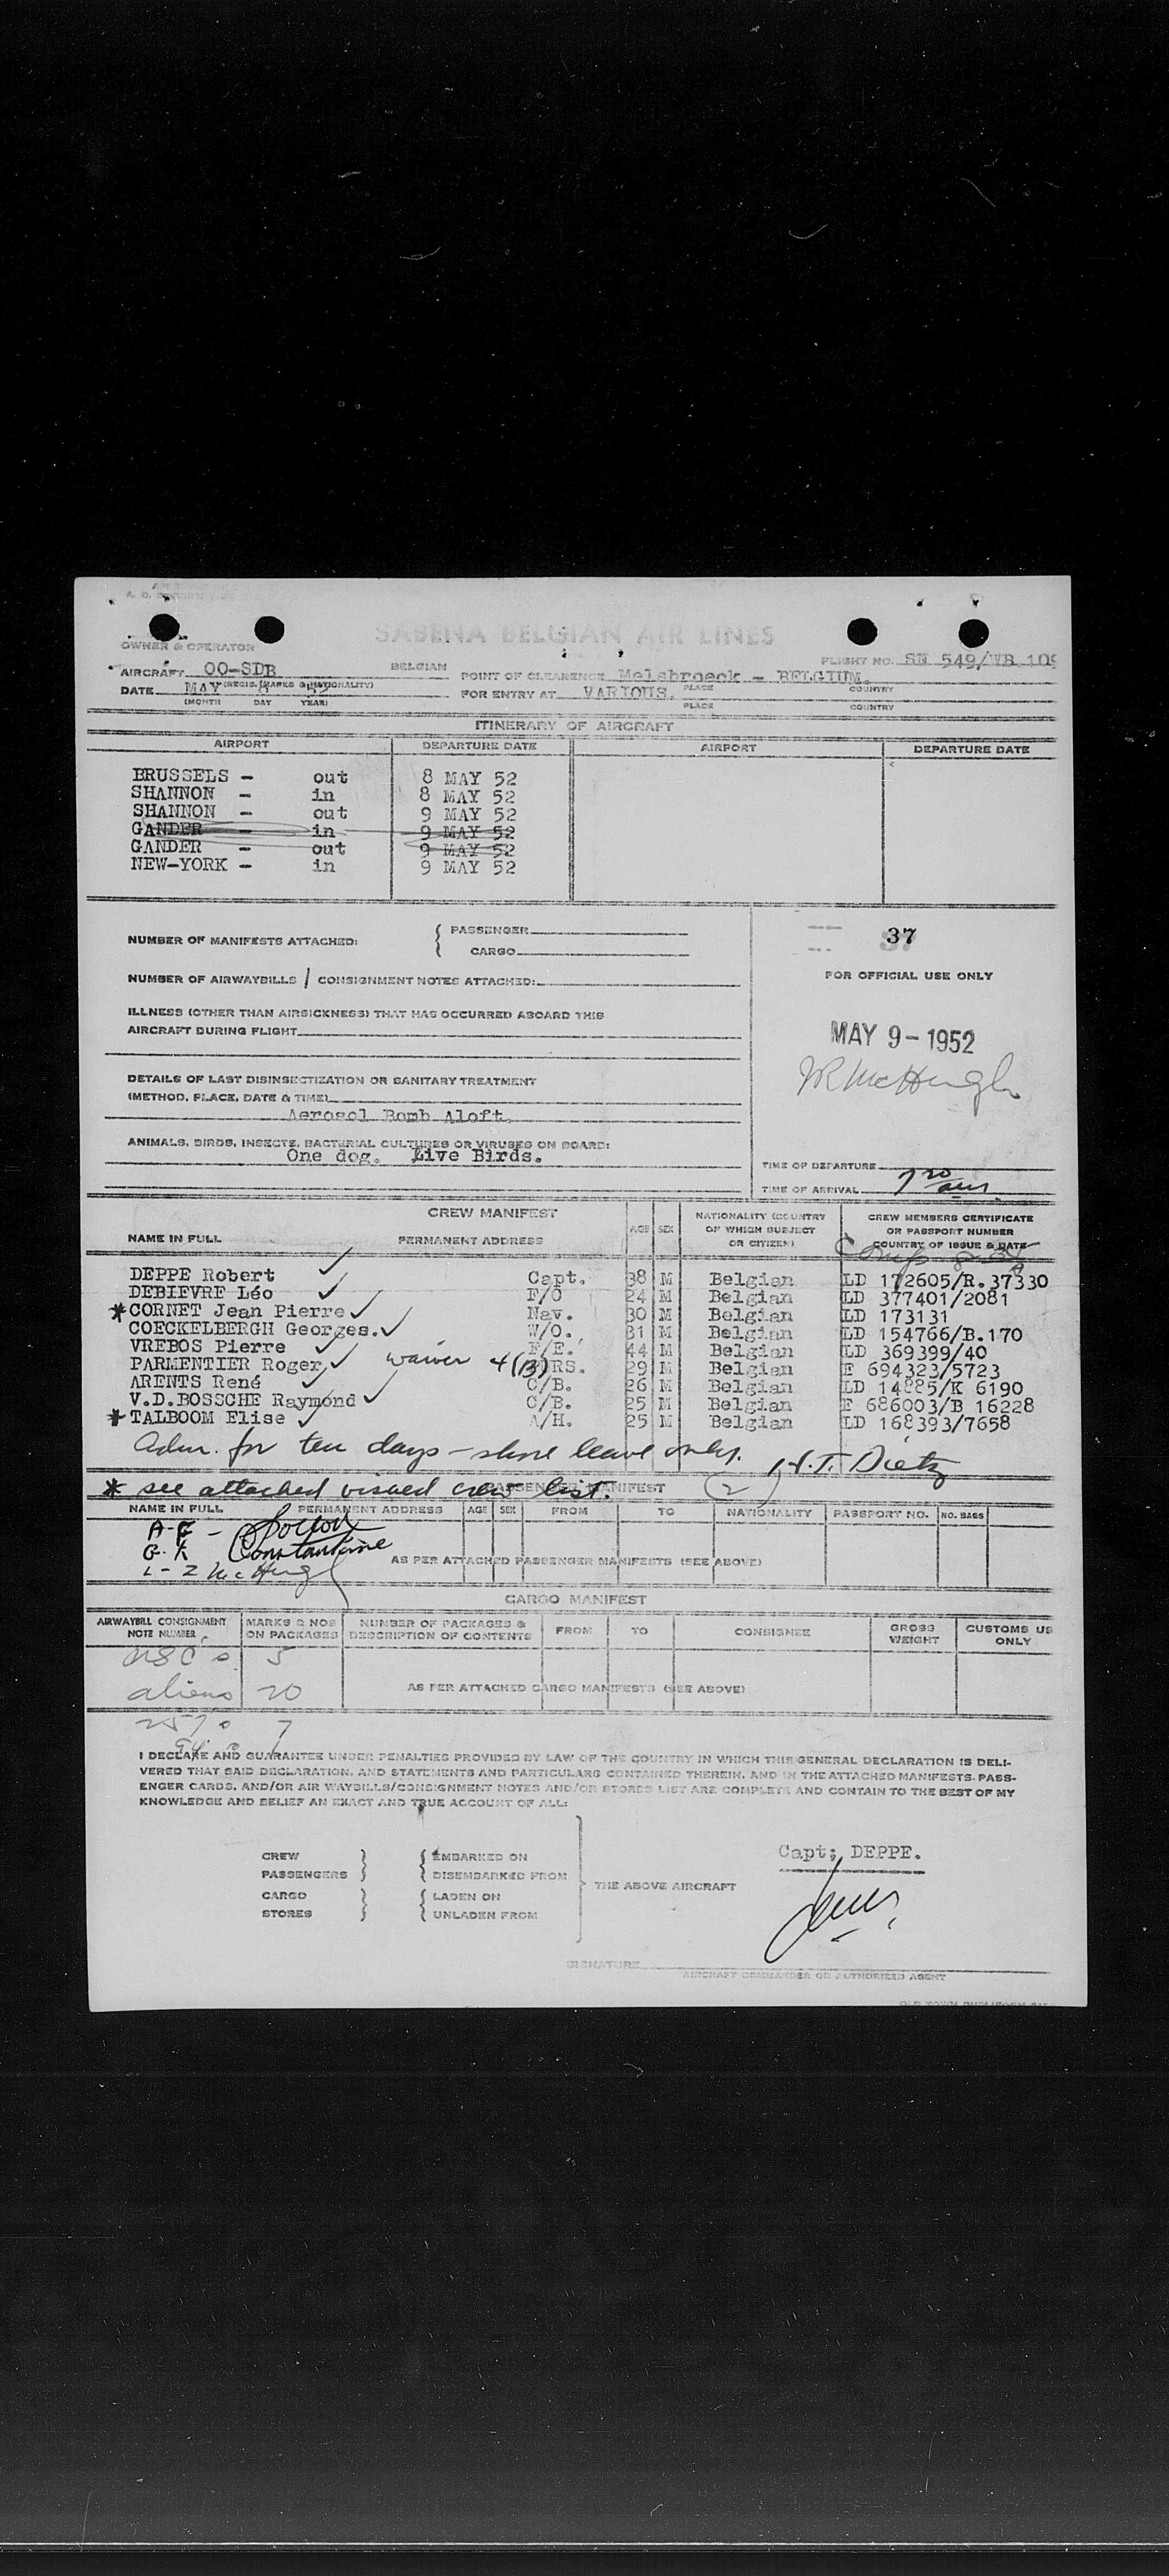 SABENA BELGIAN AIR LINES
OWNER & OPERATOR
FLIGHT NO. SN 549/WB 109
AIRCRAFT OO-SDB BELGIAN
(REGIS. MARKS & NATIONALITY)
POINT OF CLEARENCE Melsbroeck - BELGIUM.
PLACE COUNTRY
DATE MAY 8 52
(MONTH DAY YEAR)
FOR ENTRY AT VARIOUS.
PLACE COUNTRY
ITINERARY OF AIRCRAFT
AIRPORT DEPARTURE DATE AIRPORT DEPARTURE DATE
BRUSSELS - out 8 MAY 52
SHANNON - in 8 MAY 52
SHANNON - out 9 MAY 52
GANDER - in 9 MAY 52
GANDER - out 9 MAY 52
NEW-YORK - in 9 MAY 52
NUMBER OF MANIFESTS ATTACHED: PASSENGER
CARGO
37
NUMBER OF AIRWAYBILLS / CONSIGNMENT NOTES ATTACHED:
FOR OFFICIAL USE ONLY
ILLNESS (OTHER THAN AIRSICKNESS) THAT HAS OCCURRED ABOARD THIS
AIRCRAFT DURING FLIGHT
MAY 9-1952
JR McHugh
DETAILS OF LAST DISINSECTIZATION OR SANITARY TREATMENT
(METHOD, PLACE, DATE & TIME)
Aerosol Bomb Aloft.
ANIMALS, BIRDS, INSECTS, BACTERIAL CULTURES OR VIRUSES ON BOARD:
One dog. Live Birds.
TIME OF DEPARTURE
TIME OF ARRIVAL 7 20 am.
CREW MANIFEST
NAME IN FULL PERMANENT ADDRESS AGE SEX NATIONALITY (COUNTRY OF WHICH SUBJECT OR CITIZEN) CREW MEMBERS CERTIFICATE OR PASSPORT NUMBER COUNTRY OF ISSUE & DATE
DEPPE Robert Capt. 38 M Belgian LD 172605/R.37330
DEBIEVRE Léo F/O 24 M Belgian LD 377401/2081
* CORNET Jean Pierre Nav. 30 M Belgian LD 173131
COECKELBERGH Georges. W/O. 31 M Belgian LD 154766/B.170
VREBOS Pierre F/E. 44 M Belgian LD 369399/40
PARMENTIER Roger waiver 4(B) RS. 29 M Belgian E 694323/5723
ARENTS René C/B. 26 M Belgian LD 14885/K 6190
V.D.BOSSCHE Raymond C/B. 25 M Belgian F 686003/B 16228
* TALBOOM Elise A/H. 25 M Belgian LD 168393/7658
Adm. for ten days - shore leave only. H.T. Dietz
* see attached visaed crew list. (2)
PASSENGER MANIFEST
NAME IN FULL PERMANENT ADDRESS AGE SEX FROM TO NATIONALITY PASSPORT NO. NO. BAGS
A-F -
G-K Constantine
L-Z McHugh
AS PER ATTACHED PASSENGER MANIFESTS (SEE ABOVE)
CARGO MANIFEST
AIRWAYBILL CONSIGNMENT NOTE NUMBER MARKS & NOS ON PACKAGES NUMBER OF PACKAGES & DESCRIPTION OF CONTENTS FROM TO CONSIGNEE GROSS WEIGHT CUSTOMS US ONLY
USC's 5
aliens 20
AS PER ATTACHED CARGO MANIFESTS (SEE ABOVE)
7
I DECLARE AND GUARANTEE UNDER PENALTIES PROVIDED BY LAW OF THE COUNTRY IN WHICH THIS GENERAL DECLARATION IS DELI-
VERED THAT SAID DECLARATION, AND STATEMENTS AND PARTICULARS CONTAINED THEREIN, AND IN THE ATTACHED MANIFESTS, PASS-
ENGER CARDS, AND/OR AIR WAYBILLS/CONSIGNMENT NOTES AND/OR STORES LIST ARE COMPLETE AND CONTAIN TO THE BEST OF MY
KNOWLEDGE AND BELIEF AN EXACT AND TRUE ACCOUNT OF ALL:
CREW EMBARKED ON
PASSENGERS DISEMBARKED FROM
CARGO LADEN ON
STORES UNLADEN FROM
THE ABOVE AIRCRAFT
Capt; DEPPE.
SIGNATURE
AIRCRAFT COMMANDER OR AUTHORIZED AGENT